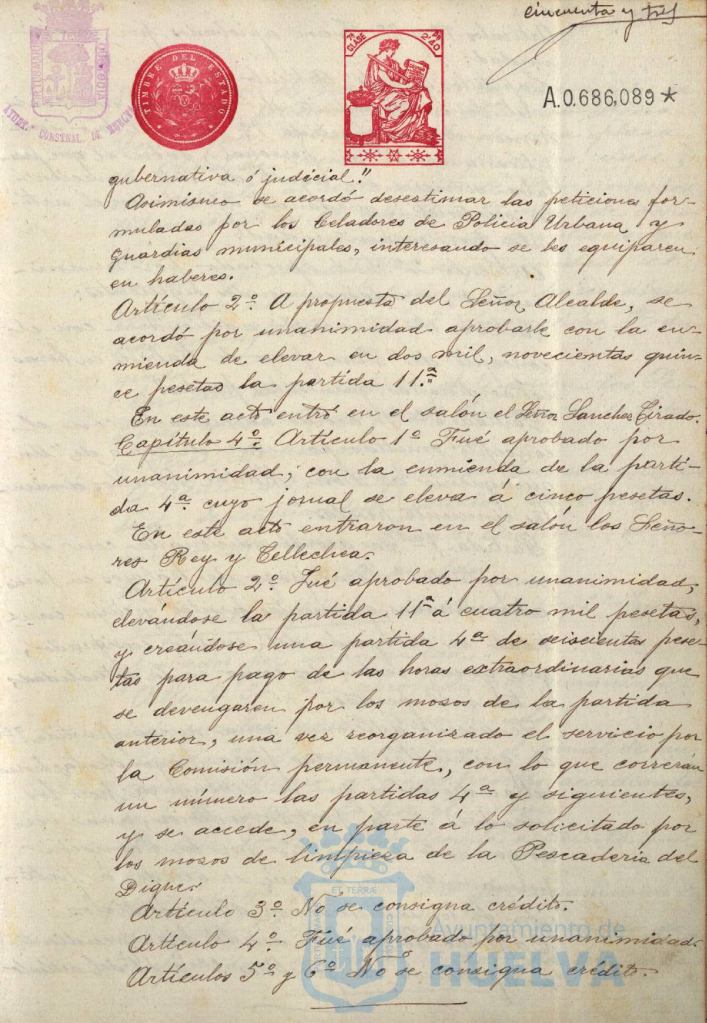 cincuenta y tres
TIMBRE DEL ESTADO
7ª CLASE
2'40
A.0.686,089 *
AYUNT. CONSTNAL. DE HUELVA
gubernativa ó judicial."
Asimismo se acordó desestimar las peticiones for-
muladas por los Celadores de Policia Urbana y
guardias municipales, interesando se les equiparen
en haberes.
Artículo 2º. A propuesta del Señor Alcalde, se
acordó por unanimidad aprobarle con la en-
mienda de elevar en dos mil, novecientas quin-
ce pesetas la partida 11.ª
En este acto entró en el salón el Señor Sanchez Tirado.
Capítulo 4º. Artículo 1º Fué aprobado por
unanimidad, con la enmienda de la parti-
da 4ª. cuyo jornal se eleva á cinco pesetas.
En este acto entraron en el salón los Seño-
res Rey y Tellechea.
Artículo 2º. Fué aprobado por unanimidad,
elevándose la partida 11ª á cuatro mil pesetas,
y creándose una partida 4ª de seiscientas pese-
tas para pago de las horas extraordinarias que
se devengaren por los mosos de la partida
anterior, una vez reorganizado el servicio por
la Comisión permanente, con lo que correrán
un número las partidas 4ª y siguientes,
y se accede, en parte á lo solicitado por
los mosos de limpieza de la Pescadería del
Dique.
Artículo 3º. No se consigna crédito.
Artículo 4º. Fué aprobado por unanimidad.
Artículos 5º y 6º No se consigna crédito.
Ayuntamiento de
HUELVA